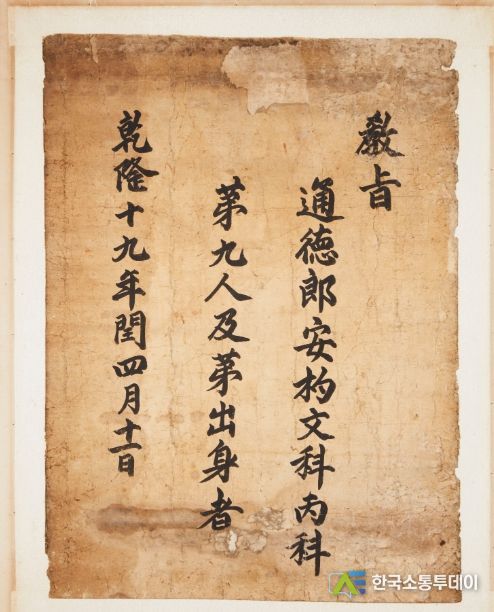 敎旨
通德郎安杓文科丙科
第九人及第出身者
乾隆十九年閏四月十一日
한국소통투데이